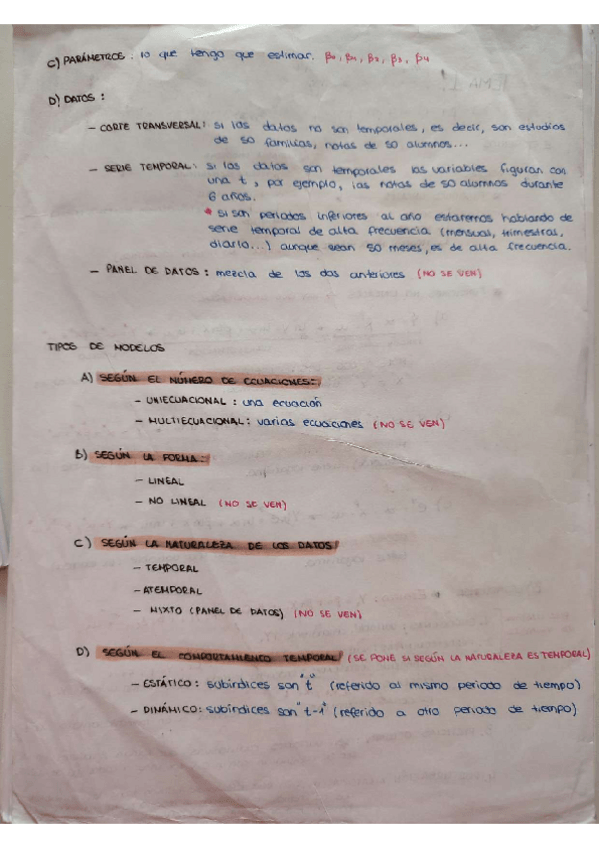 C) PARÁMETROS: lo que tengo que estimar. β₀, β₁, β₂, β₃, β₄
D) DATOS:
– CORTE TRANSVERSAL: si los datos no son temporales, es decir, son estudios
de 50 familias, notas de 50 alumnos...
– SERIE TEMPORAL: si los datos son temporales las variables figuran con
una t, por ejemplo, las notas de 50 alumnos durante
6 años.
* si son periodos inferiores al año estaremos hablando de
serie temporal de alta frecuencia (mensual, trimestral,
diario...) aunque sean 50 meses, es de alta frecuencia.
– PANEL DE DATOS: mezcla de los dos anteriores (NO SE VEN)
TIPOS DE MODELOS
A) SEGÚN EL NÚMERO DE ECUACIONES:
– UNIECUACIONAL: una ecuación
– MULTIECUACIONAL: varias ecuaciones (NO SE VEN)
B) SEGÚN LA FORMA:
– LINEAL
– NO LINEAL (NO SE VEN)
C) SEGÚN LA NATURALEZA DE LOS DATOS:
– TEMPORAL
– ATEMPORAL
– MIXTO (PANEL DE DATOS) (NO SE VEN)
D) SEGÚN EL COMPORTAMIENTO TEMPORAL (SE PONE SI SEGÚN LA NATURALEZA ES TEMPORAL)
– ESTÁTICO: subíndices son "t" (referido al mismo periodo de tiempo)
– DINÁMICO: subíndices son "t-1" (referido a otro periodo de tiempo)